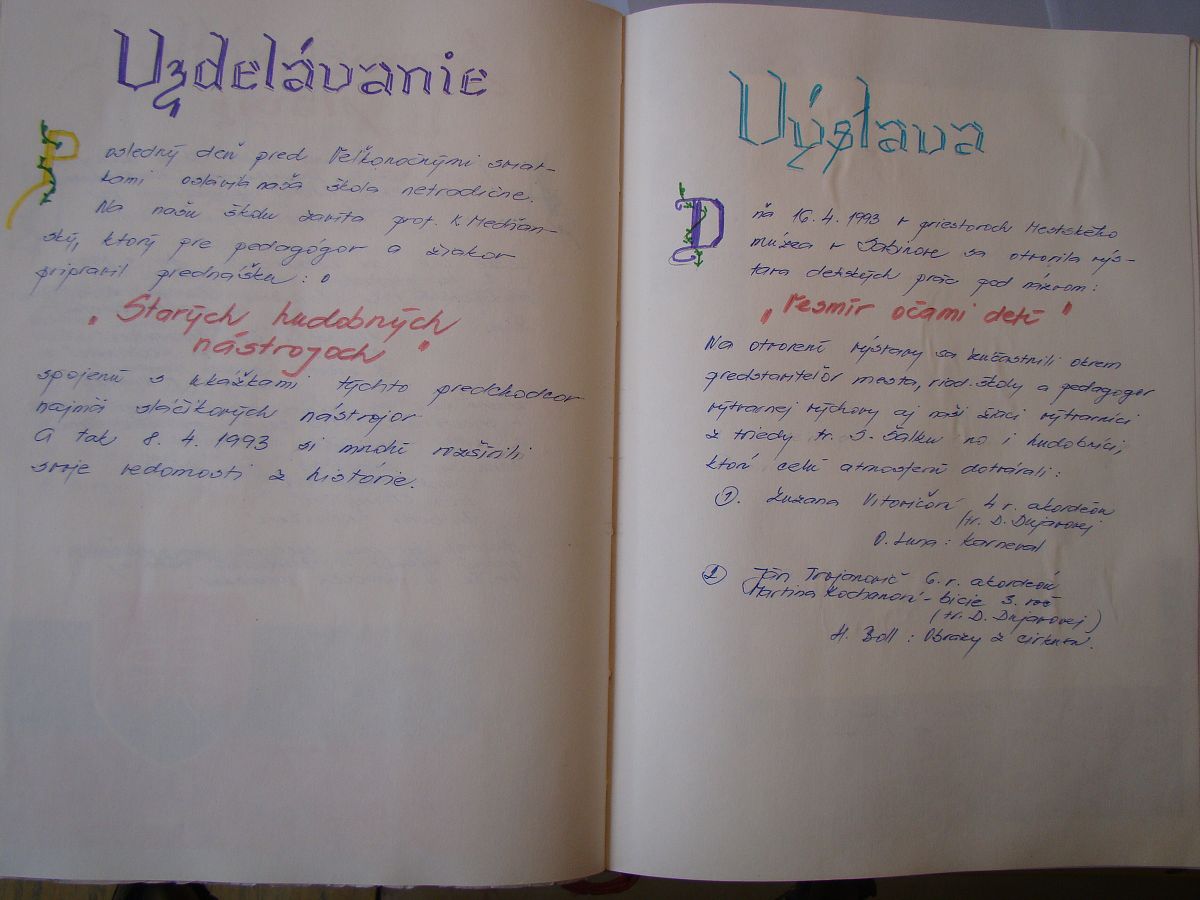 Vzdelávanie
Posledný deň pred Veľkonočnými sviat-
kami oslávila naša škola netradične.
Na našu školu zavíta prof. K. Medňan-
ský, ktorý pre pedagógov a žiakov
pripravil prednášku: o
„Starých hudobných
nástrojoch"
spojenú s ukážkami týchto predchodcov
najmä sláčikových nástrojov
A tak 8. 4. 1993 si mnohí rozšírili
svoje vedomosti z histórie.
Výstava
Dňa 16. 4. 1993 v priestoroch Mestského
múzea v Sabinove sa otvorila výs-
tava detských prác pod názvom:
„Vesmír očami detí"
Na otvorení výstavy sa zúčastnili okrem
predstaviteľov mesta, riad. školy a pedagógov
výtvarnej výchovy aj naši žiaci výtvarníci
z triedy tr. S. Šalku no i hudobníci,
ktorí celú atmosféru dotvárali:
1. Zuzana Vitovičová 4 r. akordeón
/tr. D. Dujavovej
O. Luna: Karneval
2 Ján Trojanovič 6. r. akordeón
Martina Kochanová - bicie 3. roč
(tr. D. Dujavovej)
H. Boll: Obrazy z cirkusu.